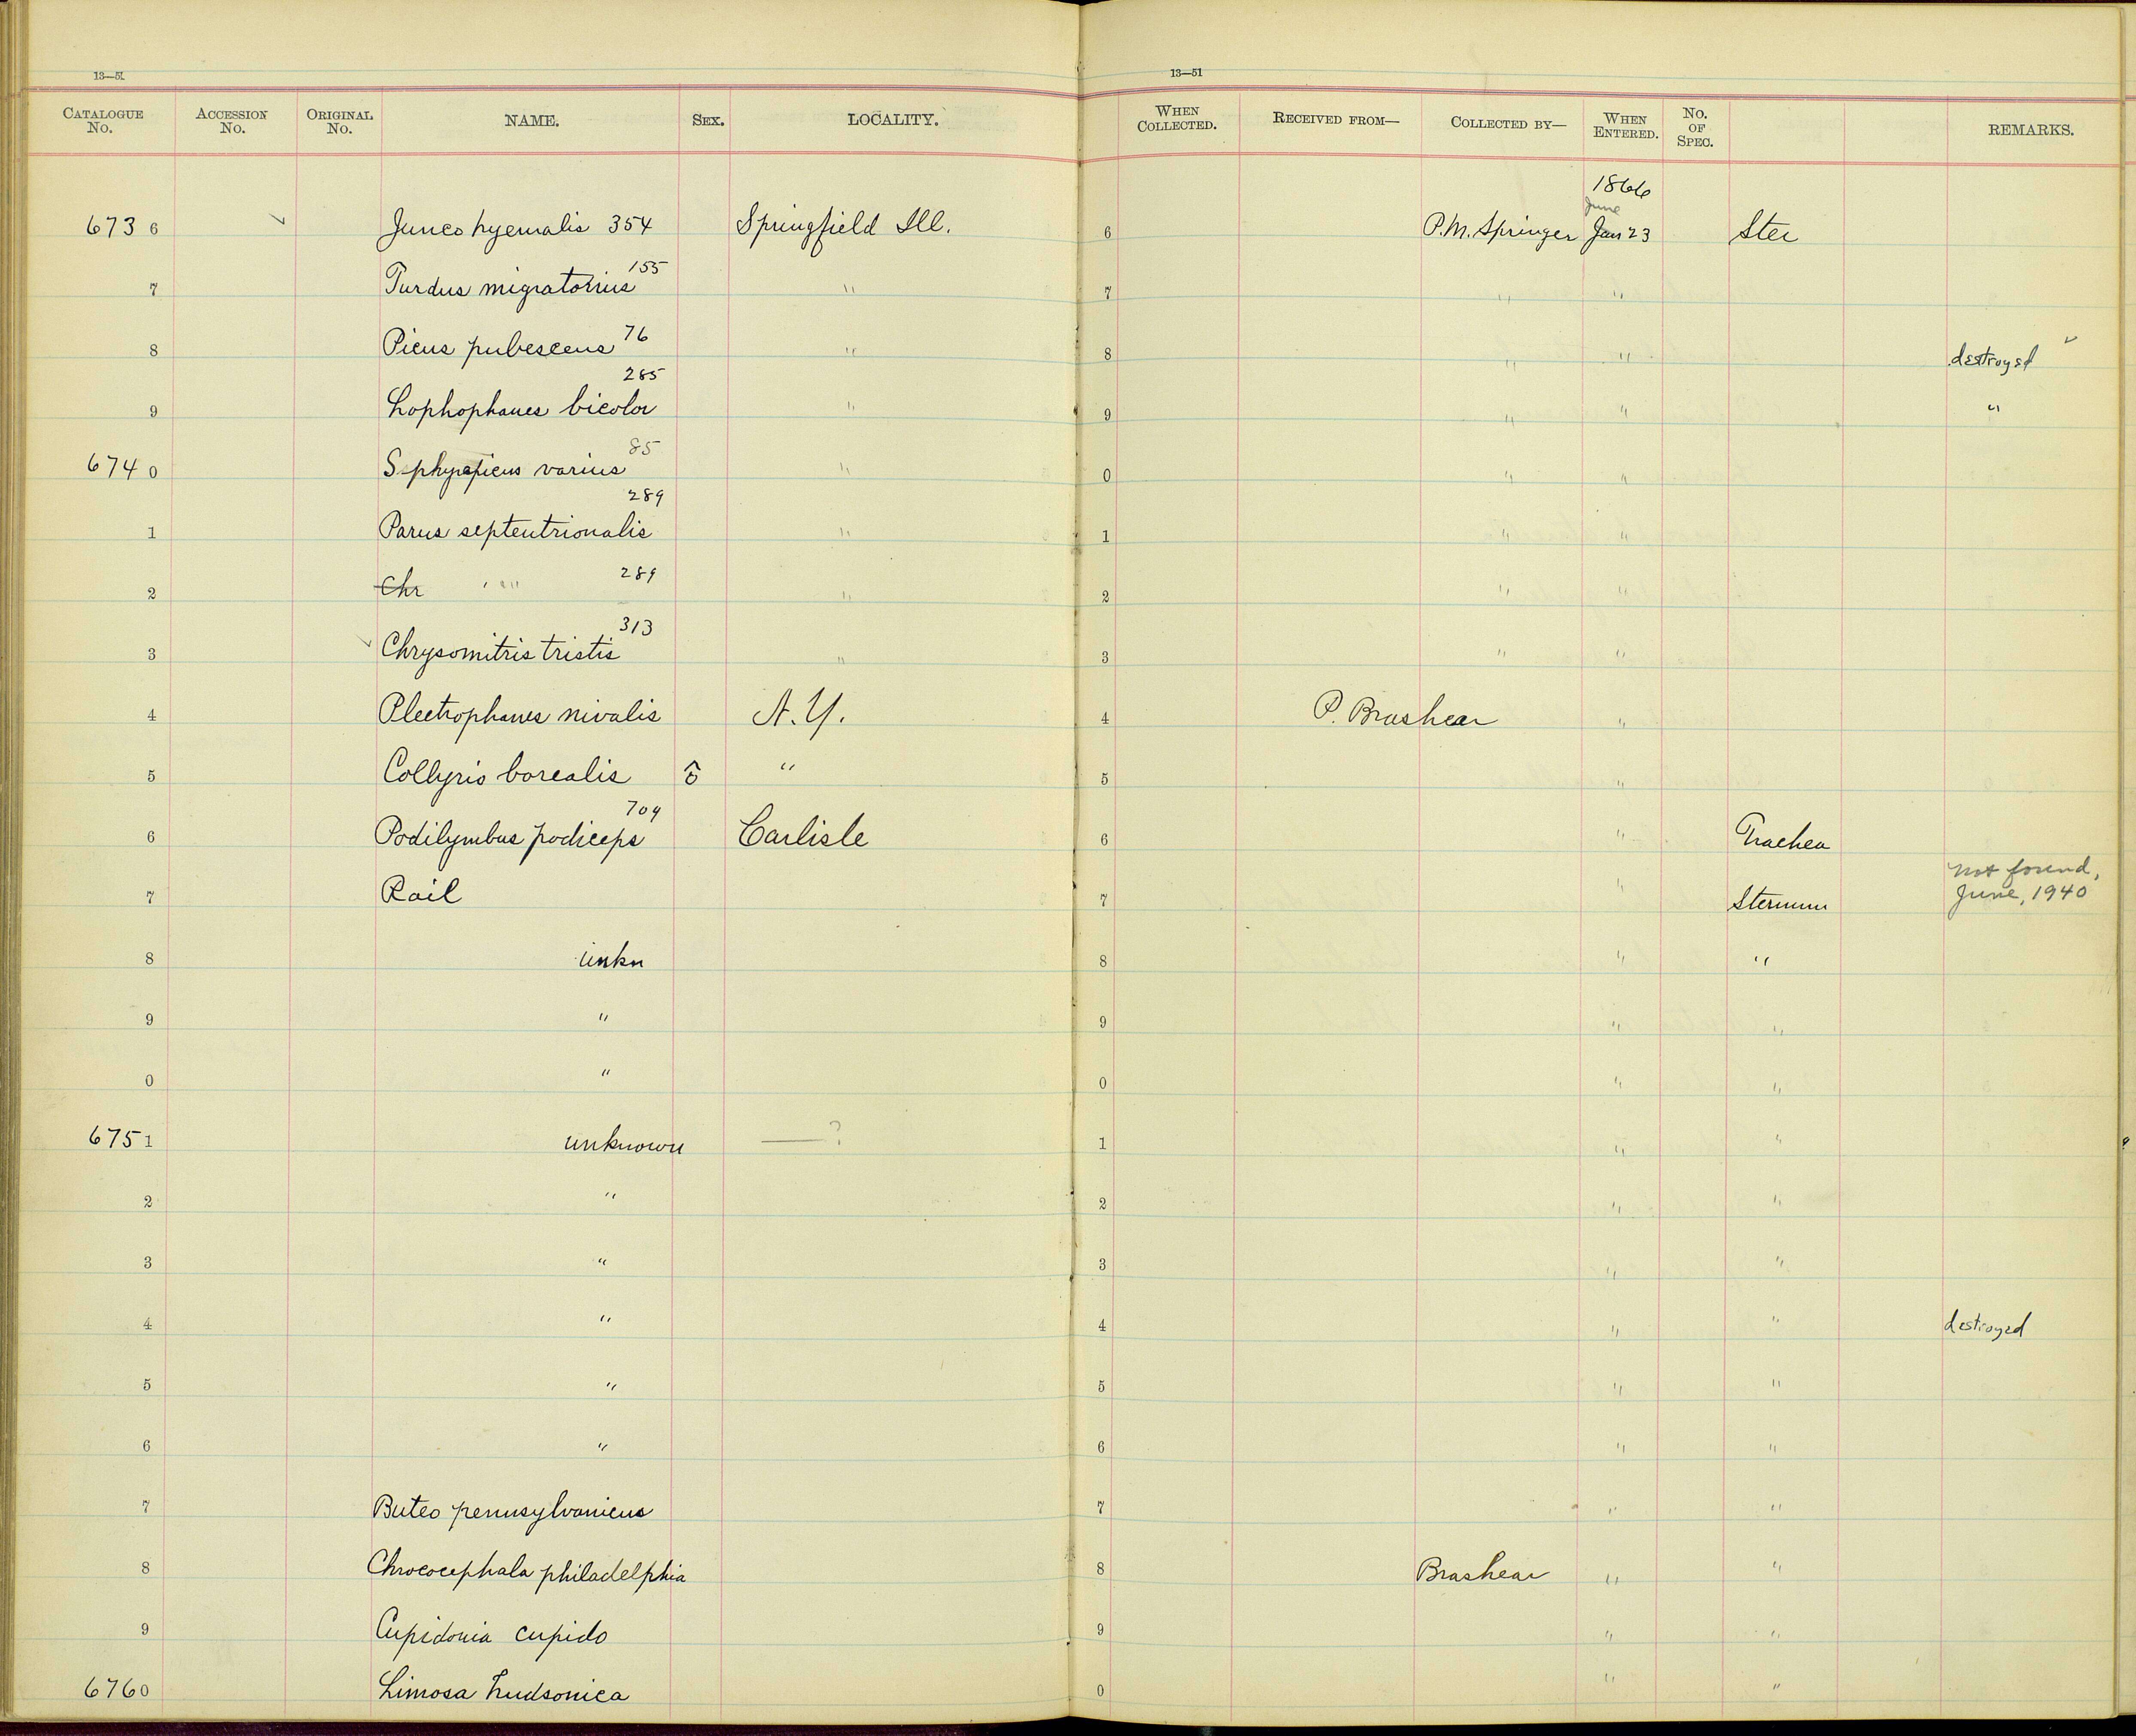 13—51 13—51
CATALOGUE No. ACCESSION No. ORIGINAL No. NAME. SEX. LOCALITY. WHEN COLLECTED. RECEIVED FROM— COLLECTED BY— WHEN ENTERED. No. OF SPEC. REMARKS.
1866
June
673 6 ✓ Junco hyemalis 354 Springfield Ill. 6 P.M. Springer Jan 23 Ster
7 Turdus migratorius 155 " 7 " "
8 Picus pubescens 76 " 8 " " destroyed ✓
9 Lophophanes bicolor 285 " 9 " " "
674 0 Sphyrapicus varius 85 " 0 " "
1 Parus septentrionalis 289 " 1 " "
2 Chr " " 289 " 2 " "
3 ✓ Chrysomitris tristis 313 " 3 " "
4 Plectrophanes nivalis N.Y. 4 P. Brashear "
5 Collyrio borealis ♂ " 5 "
6 Podilymbus podiceps 709 Carlisle 6 " Trachea
7 Rail 7 " Sternum not found, June, 1940
8 unkn 8 " "
9 " 9 " "
0 " 0 " "
675 1 unknown —? 1 " "
2 " 2 " "
3 " 3 " "
4 " 4 " " destroyed
5 " 5 " "
6 " 6 " "
7 Buteo pennsylvanicus 7 " "
8 Chrococephala philadelphia 8 Brashear " "
9 Cupidonia cupido 9 " "
676 0 Limosa hudsonica 0 " "